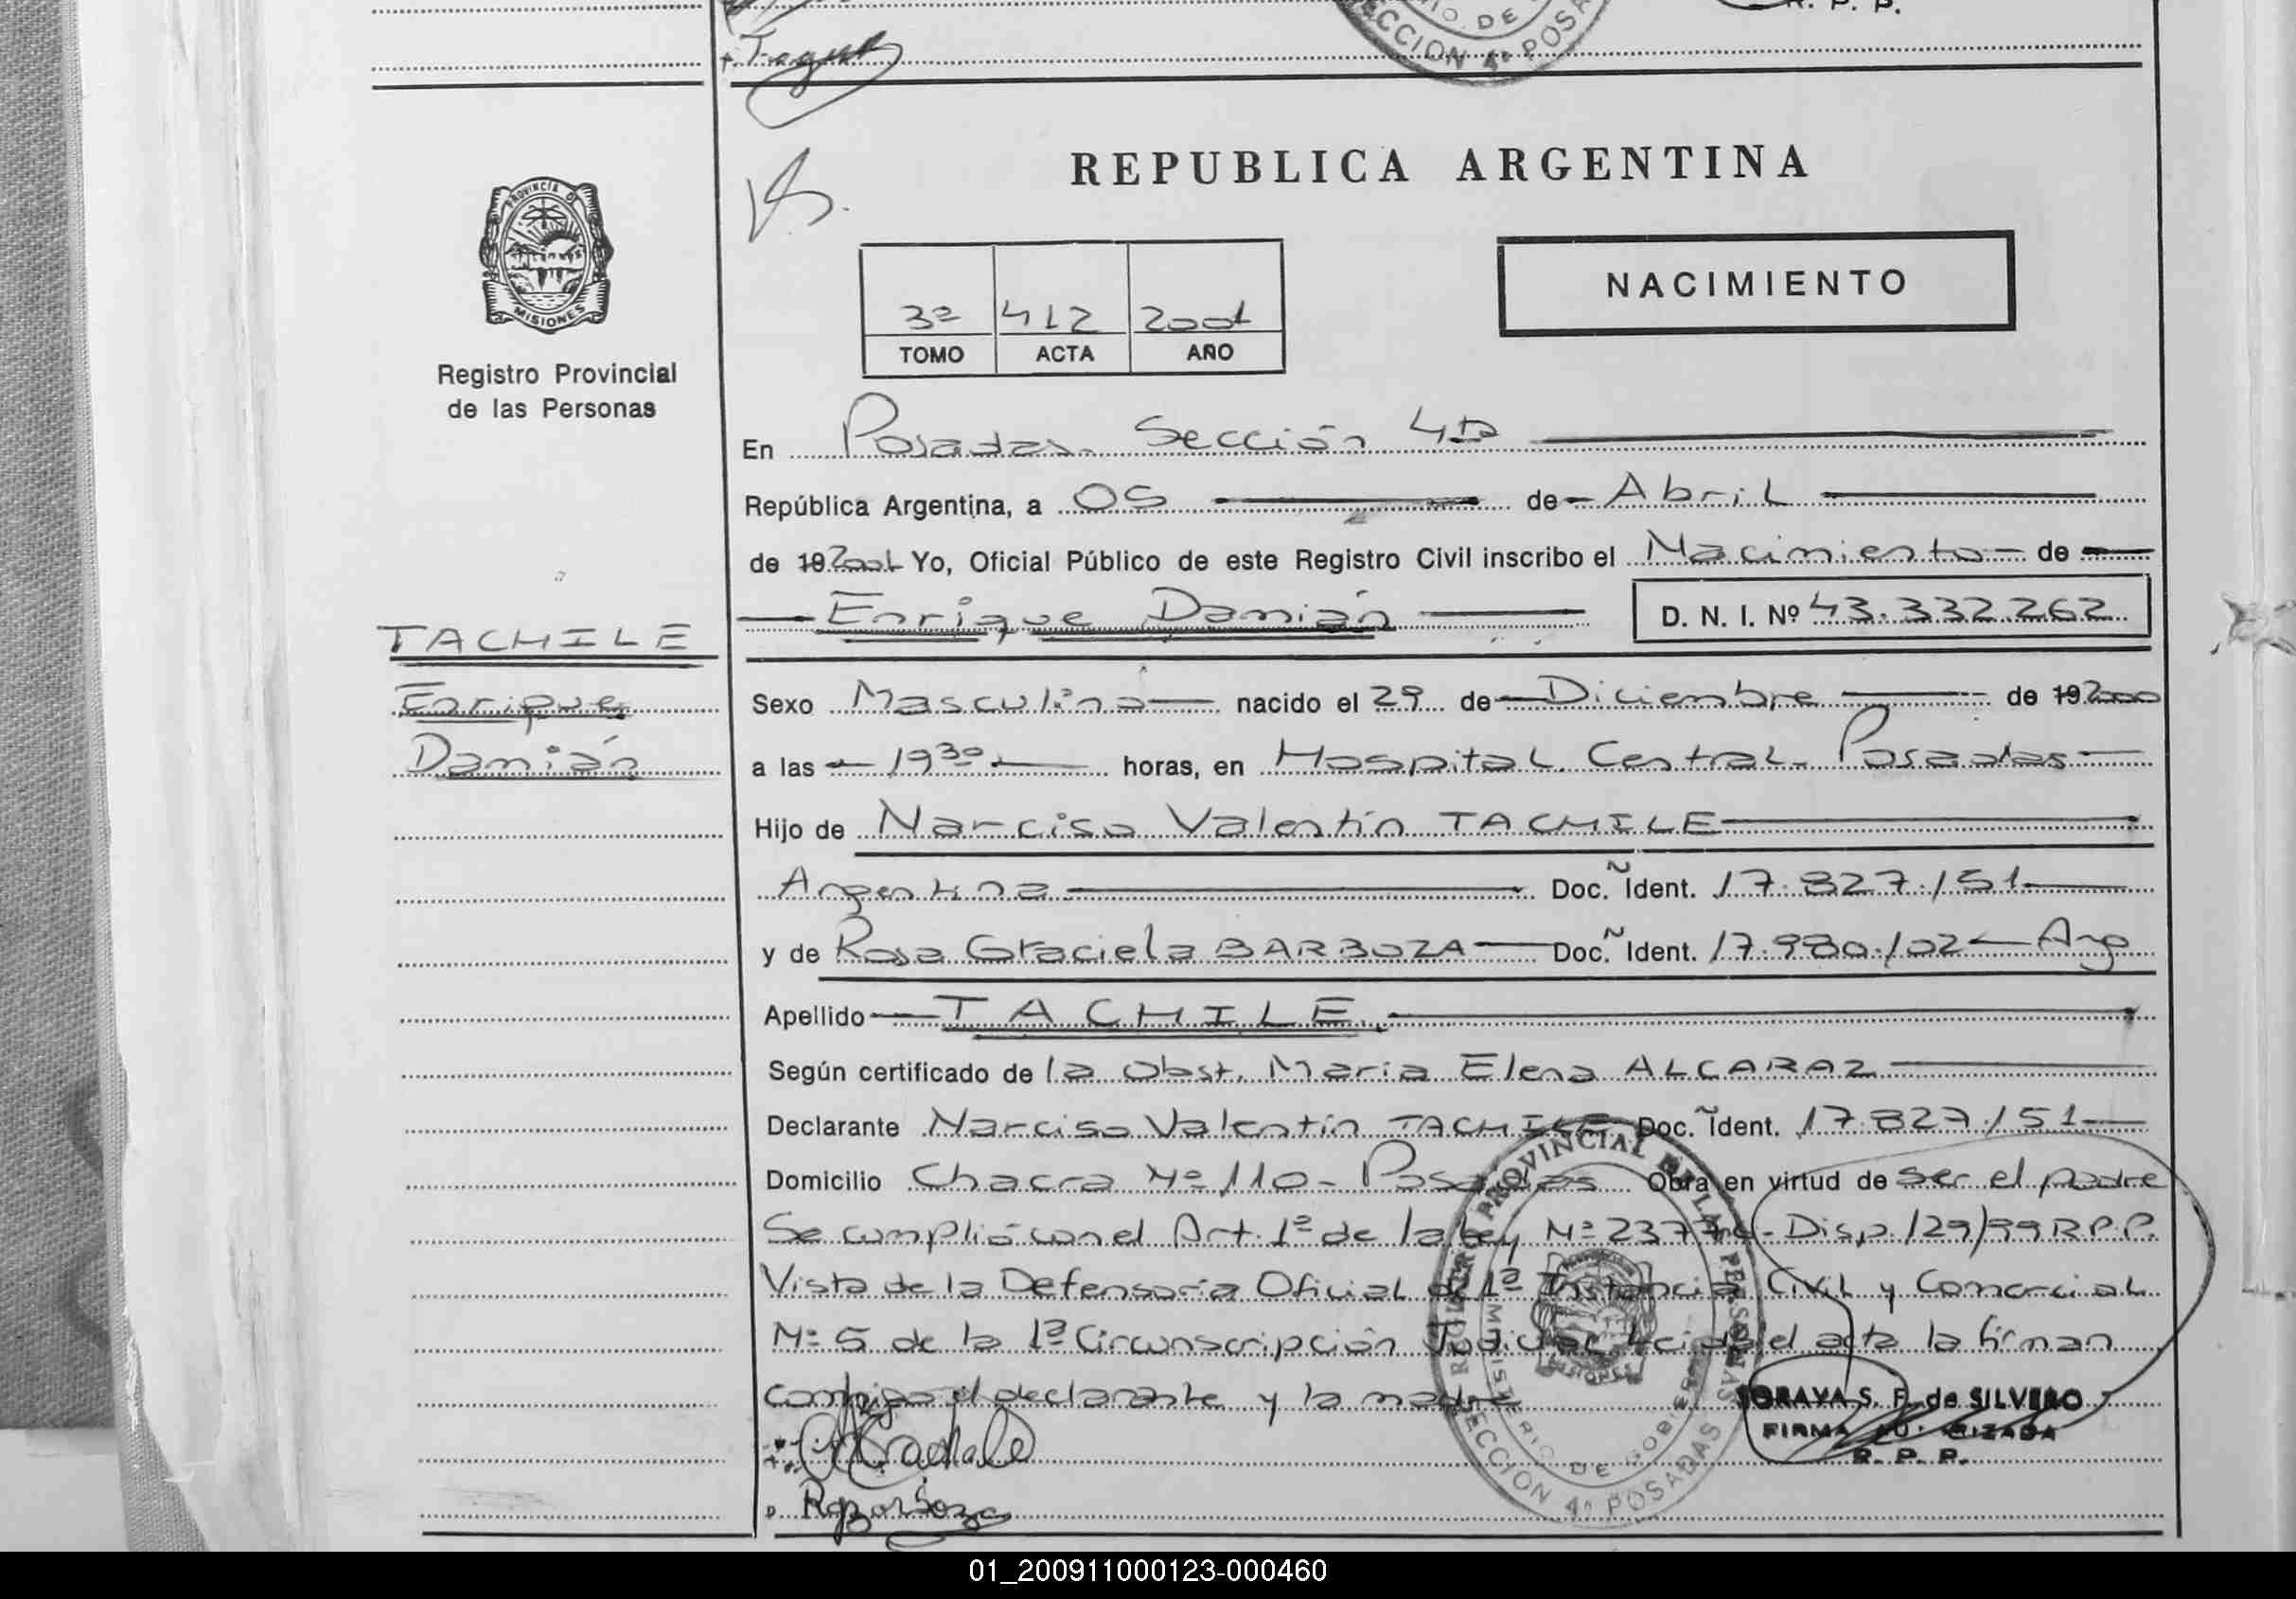 R. P. P.
SECCION 4ª POSADAS
PROVINCIA DE
MISIONES
Registro Provincial
de las Personas
REPUBLICA ARGENTINA
NACIMIENTO
3º 412 2001
TOMO ACTA AÑO
En Posadas. Sección 4ta
República Argentina, a 05 de Abril
de 19 2001 Yo, Oficial Público de este Registro Civil inscribo el Nacimiento de
Enrique Damián D. N. I. Nº 43.332.262
TACHILE
Enrique
Damián
Sexo Masculino nacido el 29 de Diciembre de 19 2000
a las 19 30 horas, en Hospital Central. Posadas
Hijo de Narciso Valentín TACHILE
Argentina Doc. Ident. 17.827.151
y de Rosa Graciela BARBOZA Doc. Ident. 17.980.102 Arg
Apellido TACHILE
Según certificado de la Obst. María Elena ALCARAZ
Declarante Narciso Valentín TACHILE Doc. Ident. 17.827.151
Domicilio Chacra Nº 110 - Posadas Obra en virtud de ser el padre
Se cumplió con el Art. 1º de la ley Nº - Disp. 129/99 R.P.P.
Vista de la Defensoría Oficial de 1ª Instancia Civil y Comercial
Nº 5 de la 1ª Circunscripción Judicial. Leída el acta la firman
conmigo el declarante y la madre
REGISTRO PROVINCIAL DE LAS PERSONAS
MINISTERIO DE GOBIERNO
SECCION 4ª POSADAS
SORAYA S. F. de SILVERO
FIRMA AUTORIZADA
R. P. P.
01_200911000123-000460